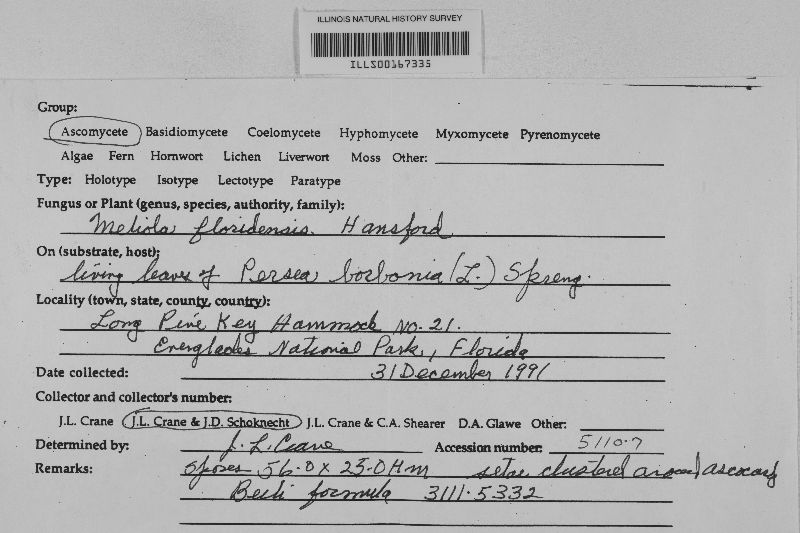 ILLINOIS NATURAL HISTORY SURVEY
ILLS00167335
Group:
Ascomycete Basidiomycete Coelomycete Hyphomycete Myxomycete Pyrenomycete
Algae Fern Hornwort Lichen Liverwort Moss Other:
Type: Holotype Isotype Lectotype Paratype
Fungus or Plant (genus, species, authority, family):
Meliola floridensis. Hansford
On (substrate, host):
living leaves of Persea borbonia (L.) Spreng.
Locality (town, state, county, country):
Long Pine Key Hammock No. 21.
Everglades National Park, Florida
Date collected: 31 December 1991
Collector and collector's number:
J.L. Crane J.L. Crane & J.D. Schoknecht J.L. Crane & C.A. Shearer D.A. Glawe Other:
Determined by: J. L. Crane Accession number: 5110.7
Remarks: Spores 56.0 x 25.0 µm setae clustered around ascocarp
Beeli formula 3111.5332